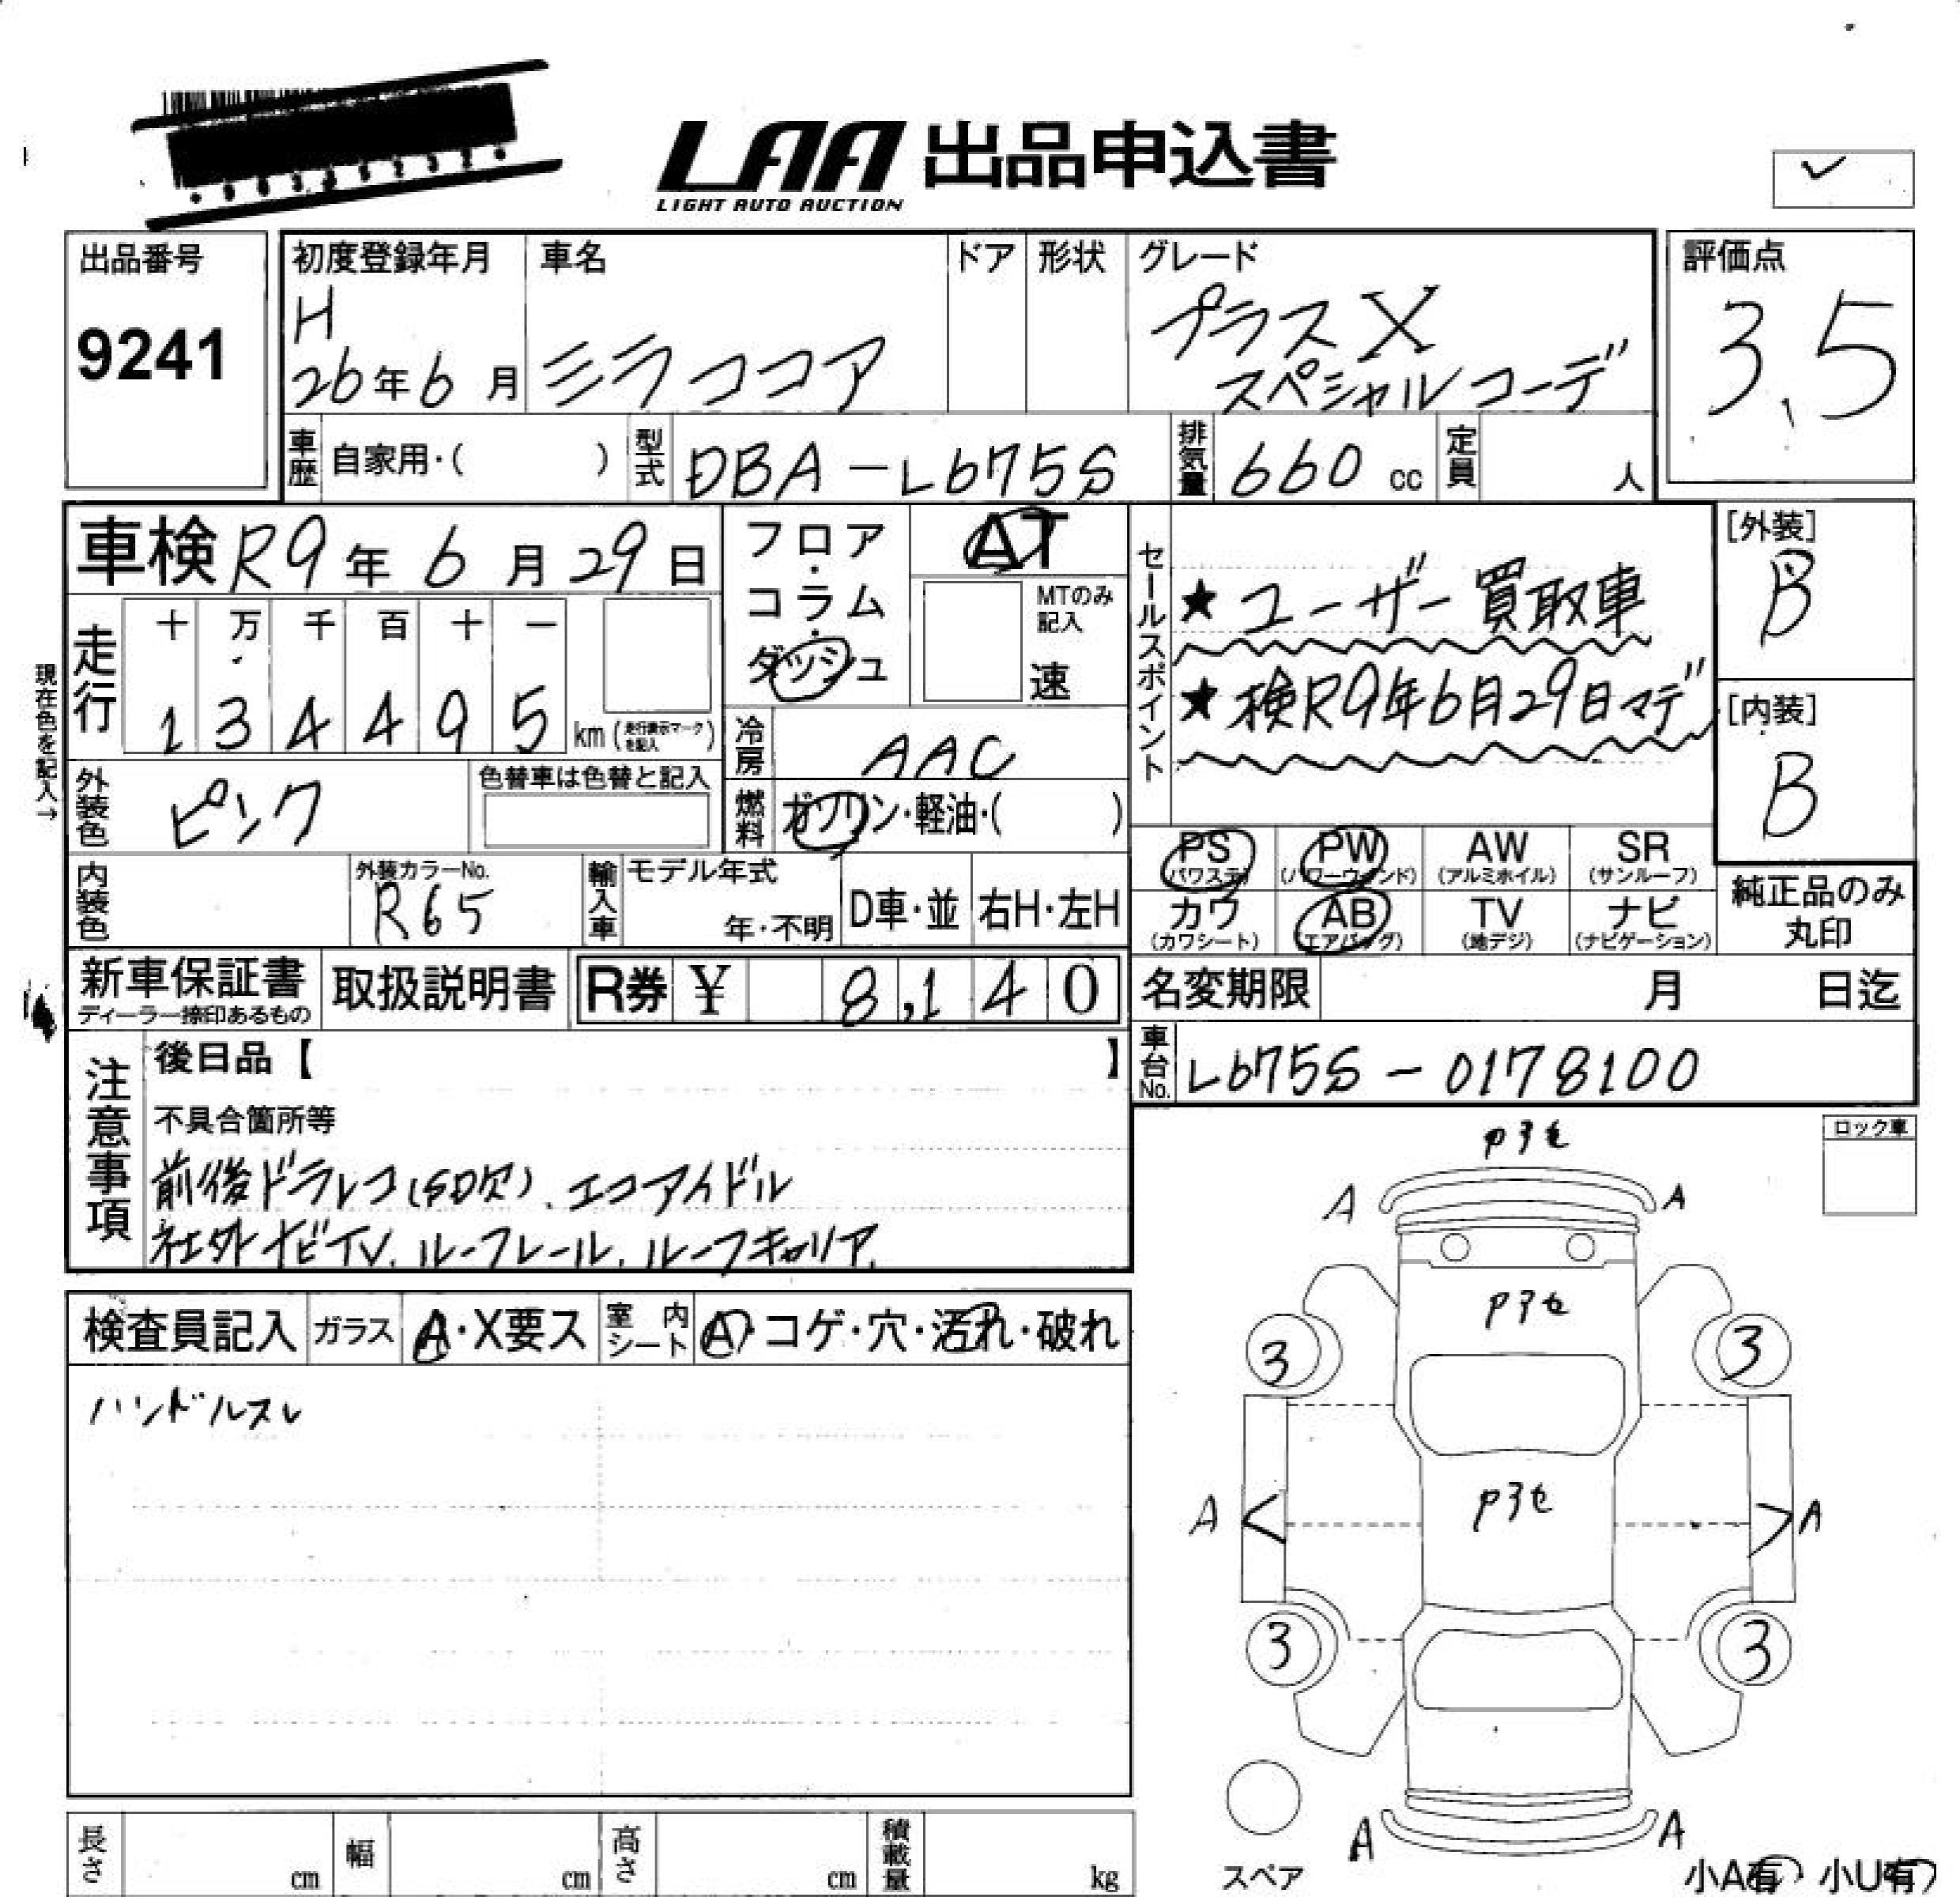 LAA 出品申込書
LIGHT AUTO AUCTION
出品番号
9241
初度登録年月
H
26年6月
車名
ミラココア
ドア
形状
グレード
プラスX
スペシャルコーデ
評価点
3.5
車歴 自家用・( )
型式 DBA-L675S
排気量 660 cc
定員 人
車検 R9年6月29日
フロア・コラム・ダッシュ
AT
MTのみ記入
速
セールスポイント
★ユーザー買取車
★検R9年6月29日マデ
[外装]
B
[内装]
B
現在色を記入→
走行
十 万 千 百 十 一
1 3 4 4 9 5 km (走行表示マークを記入)
冷房 AAC
外装色 ピンク
色替車は色替と記入
燃料 ガソリン・軽油・( )
PS (パワステ)
PW (パワーウィンド)
AW (アルミホイル)
SR (サンルーフ)
カワ (カワシート)
AB (エアバッグ)
TV (地デジ)
ナビ (ナビゲーション)
純正品のみ丸印
内装色
外装カラーNo.
R65
輸入車
モデル年式
年・不明
D車・並
右H・左H
新車保証書
ディーラー捺印あるもの
取扱説明書
R券 ¥ 8,140
名変期限 月 日迄
車台No. L675S-0178100
注意事項
後日品【 】
不具合箇所等
前後ドラレコ(SD欠)、エコアイドル
社外ナビTV、ルーフレール、ルーフキャリア、
ロック車
検査員記入
ガラス A・X要ス
室内シート A・コゲ・穴・汚れ・破れ
ハンドルスレ
A A
3 3
A A
3 3
A A
スペア
小A有 小U有
長さ cm
幅 cm
高さ cm
積載量 kg